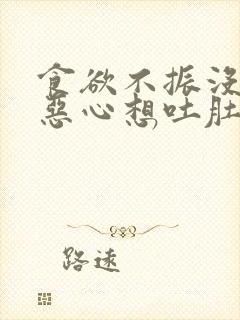 食欲不振没
恶心想吐肚
路遠